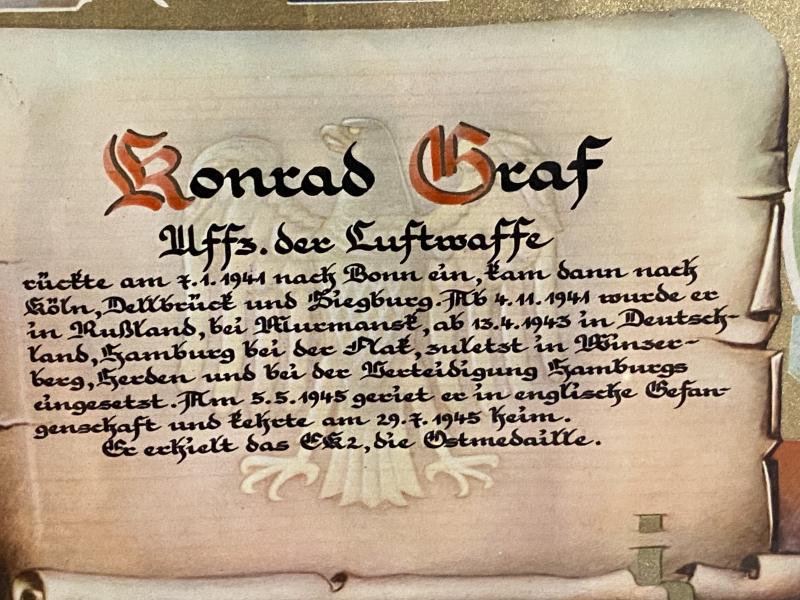 Konrad Graf
Uffz. der Luftwaffe
rückte am 7.1.1941 nach Bonn ein, kam dann nach
Köln, Dellbrück und Siegburg. Ab 4.11.1941 wurde er
in Rußland, bei Murmansk, ab 13.4.1943 in Deutsch-
land, Hamburg bei der Flak, zuletzt in Winser-
berg, Herden und bei der Verteidigung Hamburgs
eingesetzt. Am 5.5.1945 geriet er in englische Gefan-
genschaft und kehrte am 29.7.1945 heim.
Er erhielt das EK2, die Ostmedaille.